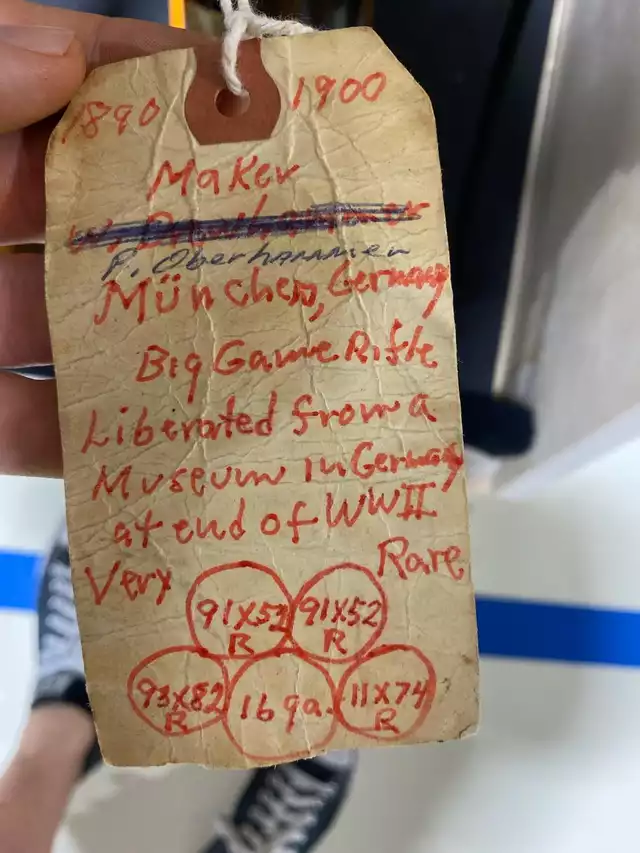 1890 1900
Maker
P. Oberhammer
München, Germany
Big Game Rifle
Liberated from a
Museum in Germany
at end of WWII
Very Rare
91X52 R 91X52 R
93X82 R 16 ga. 11X74 R